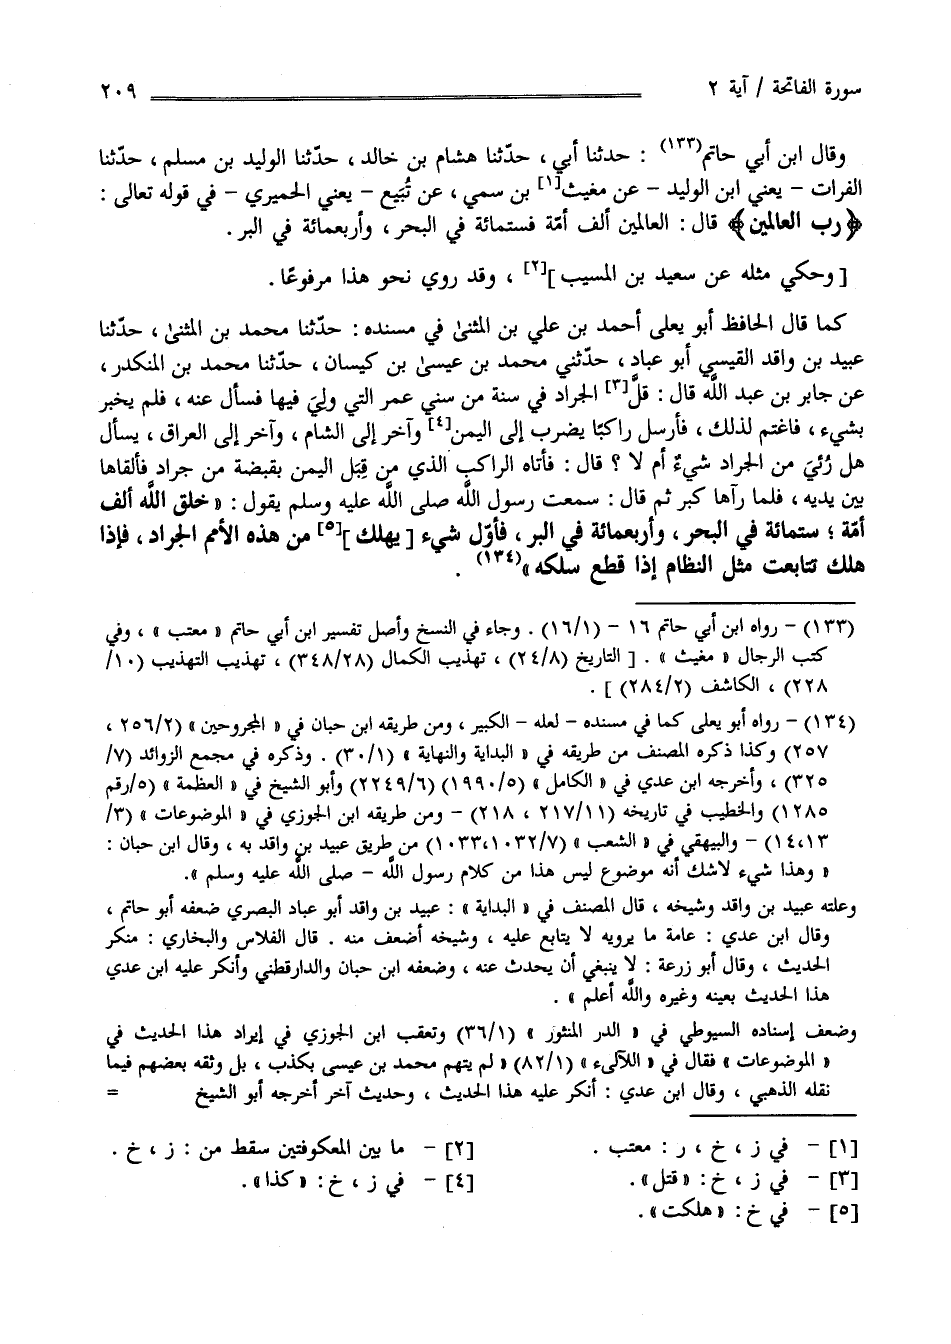 سورة الفاتحة / آية ٢ ٢٠٩
وقال ابن أبي حاتم(١٣٣) : حدثنا أبي ، حدّثنا هشام بن خالد ، حدّثنا الوليد بن مسلم ، حدّثنا
الفرات – يعني ابن الوليد – عن مغيث[١] بن سمي ، عن تُبَيع – يعني الحميري – في قوله تعالى :
﴿رب العالمين﴾ قال : العالمين ألف أمّة فستمائة في البحر ، وأربعمائة في البر .
[ وحكي مثله عن سعيد بن المسيب ][٢] ، وقد روي نحو هذا مرفوعًا .
كما قال الحافظ أبو يعلى أحمد بن علي بن المثنىٰ في مسنده : حدّثنا محمد بن المثنىٰ ، حدّثنا
عبيد بن واقد القيسي أبو عباد ، حدّثني محمد بن عيسىٰ بن كيسان ، حدّثنا محمد بن المنكدر ،
عن جابر بن عبد اللَّه قال : قلَّ[٣] الجراد في سنة من سني عمر التي ولِيَ فيها فسأل عنه ، فلم يخبر
بشيء ، فاغتم لذلك ، فأرسل راكبًا يضرب إلى اليمن[٤] وآخر إلى الشام ، وآخر إلى العراق ، يسأل
هل رُئيَ من الجراد شيءٌ أم لا ؟ قال : فأتاه الراكب الذي من قِبَل اليمن بقبضة من جراد فألقاها
بين يديه ، فلما رآها كبر ثم قال : سمعت رسول اللَّه صلى اللَّه عليه وسلم يقول : « خلق اللَّه ألف
أمّة ؛ ستمائة في البحر ، وأربعمائة في البر ، فأوّل شيء [ يهلك ][٥] من هذه الأمم الجراد ، فإذا
هلك تتابعت مثل النظام إذا قطع سلكه »(١٣٤) .
(١٣٣) – رواه ابن أبي حاتم ١٦ – (١٦/١) . وجاء في النسخ وأصل تفسير ابن أبي حاتم « معتب » ، وفي
كتب الرجال « مغيث » . [ التاريخ (٢٤/٨) ، تهذيب الكمال (٣٤٨/٢٨) ، تهذيب التهذيب (١٠/
٢٢٨) ، الكاشف (٢٨٤/٢) ] .
(١٣٤) – رواه أبو يعلى كما في مسنده – لعله – الكبير ، ومن طريقه ابن حبان في « المجروحين » (٢٥٦/٢ ،
٢٥٧) وكذا ذكره المصنف من طريقه في « البداية والنهاية » (٣٠/١) . وذكره في مجمع الزوائد (٧/
٣٢٥) ، وأخرجه ابن عدي في « الكامل » (١٩٩٠/٥) (٢٢٤٩/٦) وأبو الشيخ في « العظمة » (٥/رقم
١٢٨٥) والخطيب في تاريخه (٢١٧/١١ ، ٢١٨) – ومن طريقه ابن الجوزي في « الموضوعات » (٣/
١٤،١٣) – والبيهقي في « الشعب » (١٠٣٣،١٠٣٢/٧) من طريق عبيد بن واقد به ، وقال ابن حبان :
« وهذا شيء لاشك أنه موضوع ليس هذا من كلام رسول اللَّه – صلى اللَّه عليه وسلم ».
وعلته عبيد بن واقد وشيخه ، قال المصنف في « البداية » : عبيد بن واقد أبو عباد البصري ضعفه أبو حاتم ،
وقال ابن عدي : عامة ما يرويه لا يتابع عليه ، وشيخه أضعف منه . قال الفلاس والبخاري : منكر
الحديث ، وقال أبو زرعة : لا ينبغي أن يحدث عنه ، وضعفه ابن حبان والدارقطني وأنكر عليه ابن عدي
هذا الحديث بعينه وغيره واللَّه أعلم » .
وضعف إسناده السيوطي في « الدر المنثور » (٣٦/١) وتعقب ابن الجوزي في إيراد هذا الحديث في
« الموضوعات » فقال في « اللآلىء » (٨٢/١) « لم يتهم محمد بن عيسى بكذب ، بل وثقه بعضهم فيما
نقله الذهبي ، وقال ابن عدي : أنكر عليه هذا الحديث ، وحديث آخر أخرجه أبو الشيخ =
[١] – في ز ، خ ، ر : معتب . [٢] – ما بين المعكوفتين سقط من : ز ، خ .
[٣] – في ز ، خ : «قتل». [٤] – في ز ، خ : «كذا».
[٥] – في خ : «هلكت».